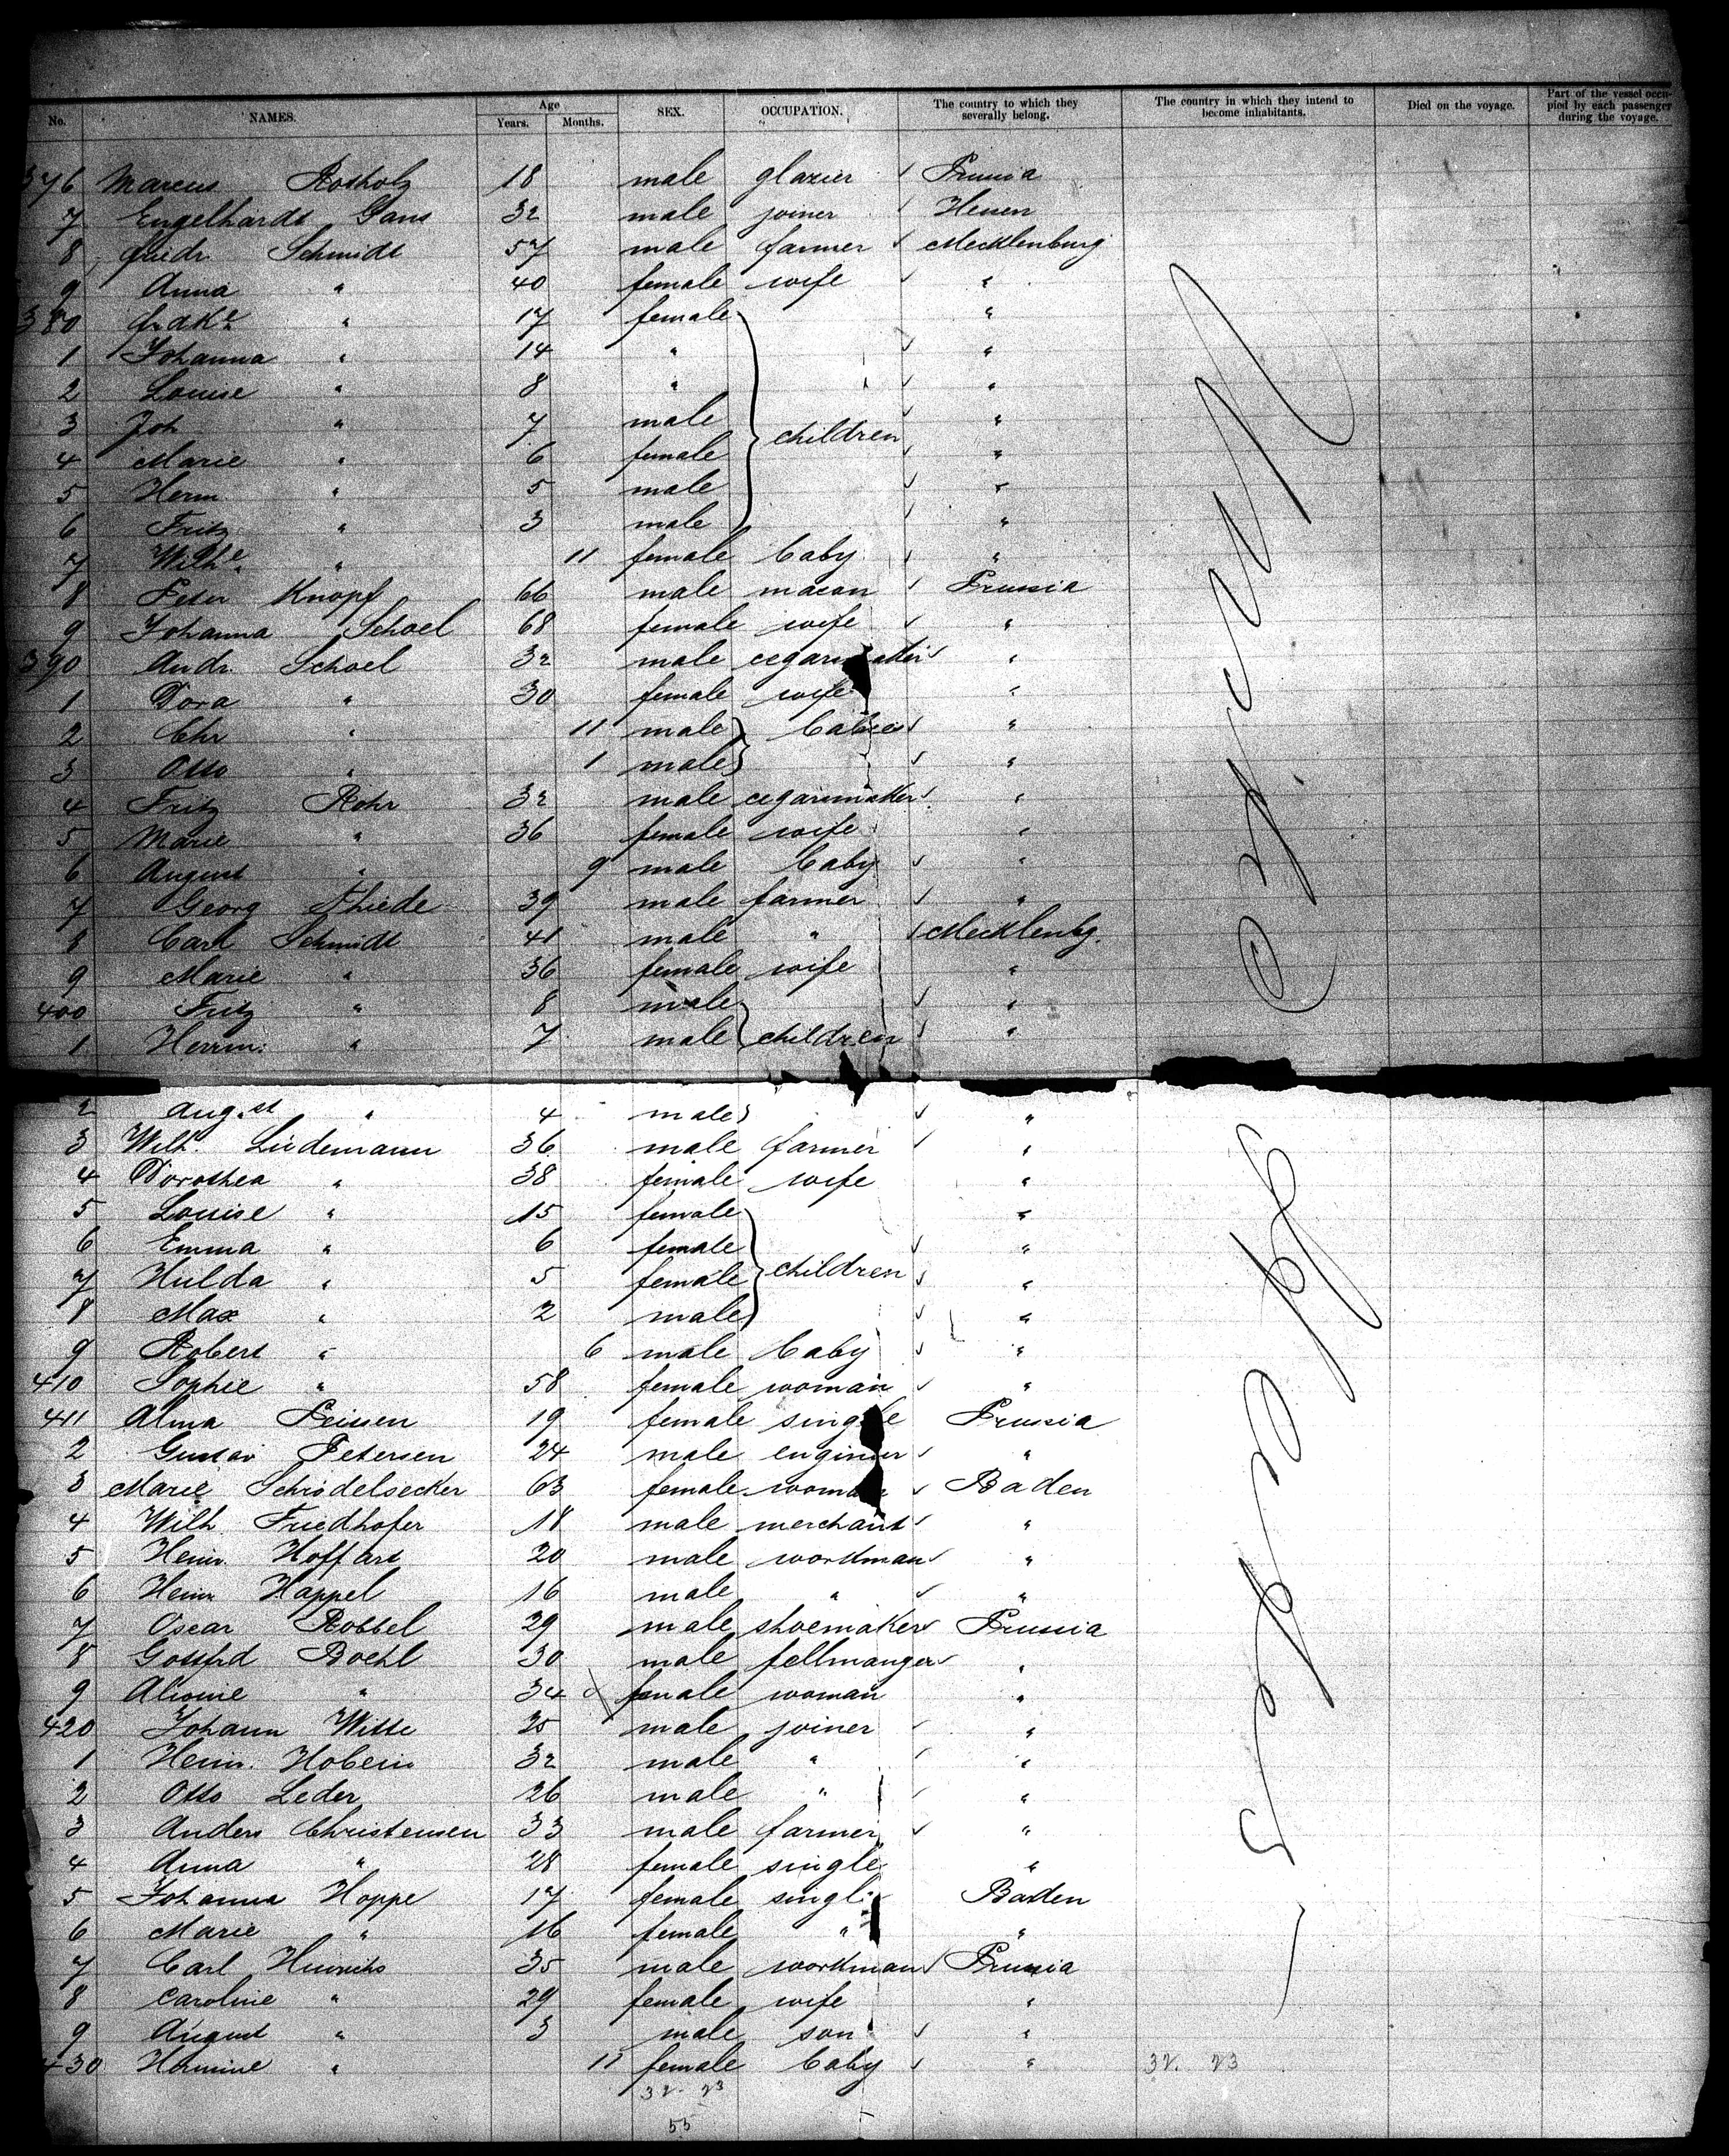 No. NAMES. Age Years. Months. SEX. OCCUPATION. The country to which they severally belong. The country in which they intend to become inhabitants. Died on the voyage. Part of the vessel occupied by each passenger during the voyage.
376 Marcus Rothholz 18 male glazier Prussia
7 Engelhardt Gans 32 male joiner Hessen
8 Friedr. Schmidt 57 male farmer Mecklenburg
9 Anna " 40 female wife "
380 " 17 female "
1 Johanna " 14 " "
2 Louise " 8 " "
3 Joh " 7 male "
children
4 Marie " 6 female "
5 Herm. " 5 male "
6 Fritz " 3 male "
7 Wilhe. " 11 female baby "
8 Peter Knopf 66 male macon Prussia
9 Johanna Schoel 68 female wife "
390 Andr. Schoel 32 male "
1 Dora " 30 female wife "
2 Chr " 11 male babies "
3 Otto " 1 male "
4 Fritz Rohr 32 male cegarmaker "
5 Marie " 36 female wife "
6 August " 9 male baby "
7 Georg Thiede 39 male farmer "
8 Carl Schmidt 41 male " Mecklenbg.
9 Marie " 36 female wife "
400 Fritz " 8 male "
1 Herrm: " 7 male children "
2 Aug.st " 4 male "
3 Wilh. Lüdemann 36 male farmer "
4 Dorothea " 38 female wife "
5 Louise " 15 female "
6 Emma " 6 female "
7 Hulda " 5 female children "
8 Max " 2 male "
9 Robert " 6 male baby "
410 Sophie " 58 female woman "
411 Alma Peissen 19 female single Prussia
2 Gustav Petersen 24 male engineer "
3 Marie 63 female woman Baden
4 Wilh Friedhofer 18 male merchant "
5 Heinr. Hoffart 20 male workman "
6 Heinr Happel 16 male " "
7 Oscar 29 male shoemaker Prussia
8 Gottfrd Boehl 30 male fellmanger "
9 " 34 female woman "
420 Johann Witte 25 male joiner "
1 Heinr. Hobein 32 male " "
2 Otto Leder 26 male " "
3 Anders Christensen 33 male farmer "
4 Anna " 28 female single "
5 Johanna Hoppe 17 female singl Baden
6 Marie " 16 female " "
7 Carl Hinrichs 35 male workman Prussia
8 Caroline " 29 female wife "
9 August " 3 male son "
430 Hermine " 11 female baby " 32. 23
32. 23
55